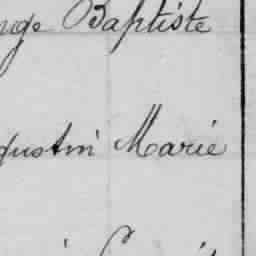 nge Baptiste
gustin Marie